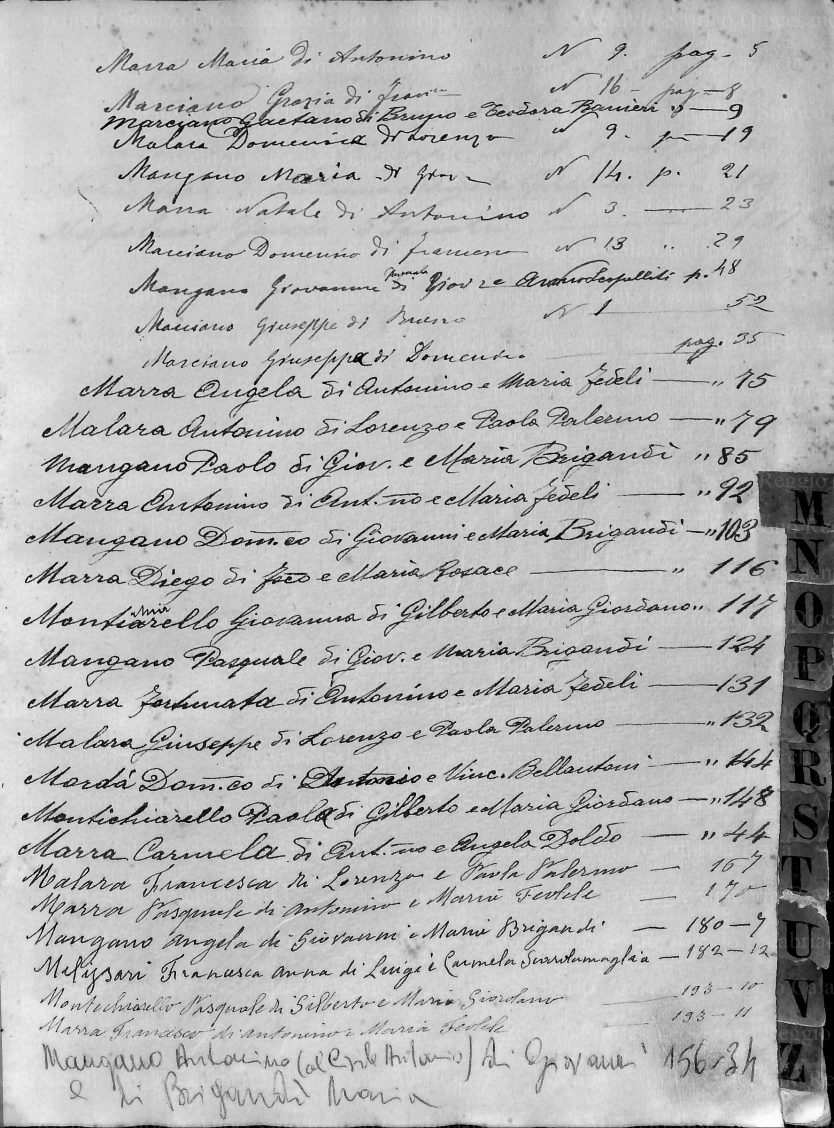 Marra Maria di Antonino N 9. pag. 5
Marciano Grazia di N 16 - pag - 8
Marciano Gaetano di Bruno e Teodora Ranieri " — 9
Malara Domenica di Lorenzo " 9. p — 19
Mangano Maria di Giov N 14. p. 21
Marra Natale di Antonino N 3. — 23
Marciano Domenico di Francesco N 13 " . 29
Mangano Giovanna di Giov. e p. 48
Marciano Giuseppe di Bruno N 1 — 52
Marciano Giuseppa di Domenico — pag. 35
Marra Angela di Antonino e Maria Fedeli — " 75
Malara Antonino di Lorenzo e Paola Palermo — " 79
Mangano Paolo di Giov. e Maria Brigandì " 85
Marra Antonino di Ant.no e Maria Fedeli — " 92
Mangano Dom.co di Giovanni e Maria Brigandì — " 103
Marra Diego di Fco e Maria Rosace — " 116
Montichiarello Giovanna di Gilberto e Maria Giordano " 117
Mangano Pasquale di Giov. e Maria Brigandì — 124
Marra Fortunata di Antonino e Maria Fedeli — 131
Malara Giuseppe di Lorenzo e Paola Palermo — " 132
Mordá Dom.co di Antonio e Vinc. Bellantoni — " 144
Montichiarello Paola di Gilberto e Maria Giordano — " 148
Marra Carmela di Ant.no e Angela Doldo — " 44
Malara Francesca di Lorenzo e Paola Palermo — 167
Marra Pasquale di Antonino e Maria Fedele — 170
Mangano Angela di Giovanni e Maria Brigandi — 180 — 7
Francesca Anna di Luigi e Carmela Scordamaglia — 182 — 12
Montechiarello Pasquale di Gilberto e Maria Giordano — 193 — 10
Marra Francesco di Antonino e Maria Fedele — 193 — 11
Mangano Antonino (al Civile Antonio) di Giovanni 156-34
e di Brigandì Maria
M
N
O
P
Q
R
S
T
U
V
Z